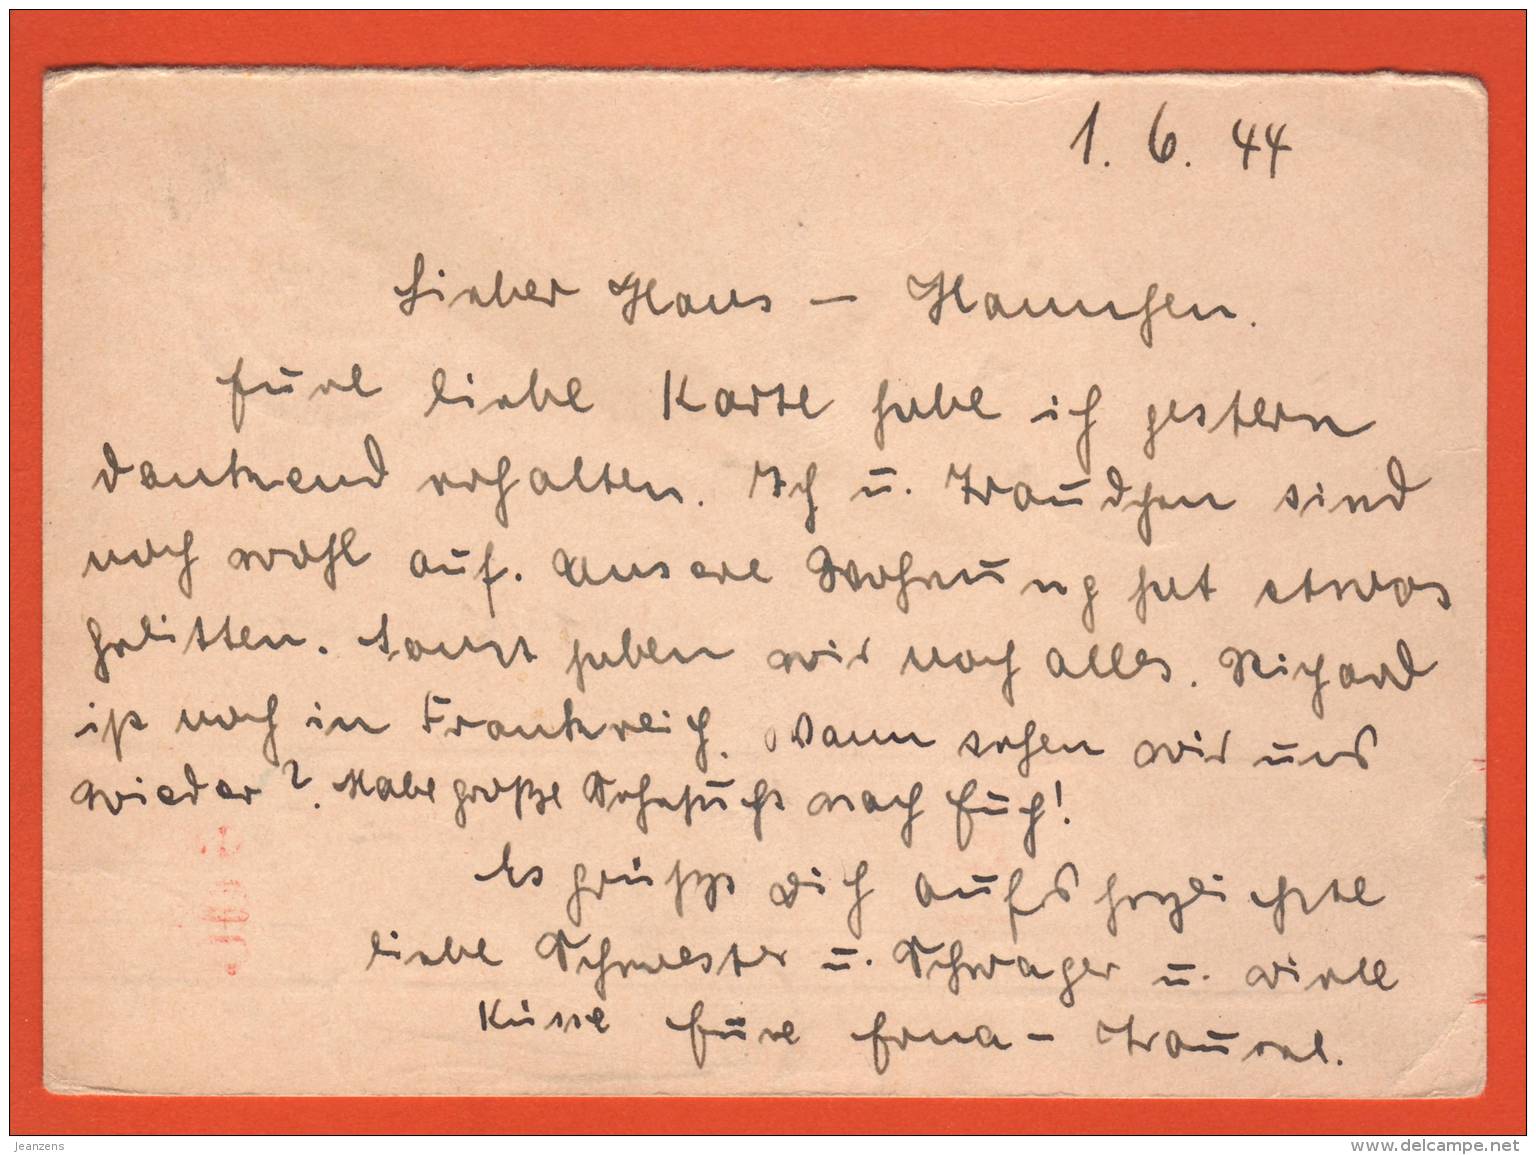 1. 6. 44
Lieber Hans – Hannchen.
Eure liebe Karte habe ich gestern
dankend erhalten. Ich u. Traudchen sind
noch wohl auf. Unsere Wohnung hat etwas
gelitten. Sonst haben wir noch alles. Richard
ist noch in Frankreich. Wann sehen wir uns
wieder? Habe große Sehnsucht nach Euch!
Es grüßt Dich aufs herzlichste
liebe Schwester u. Schwager u. viele
Küsse Eure Erna –
jeanzens
www.delcampe.net